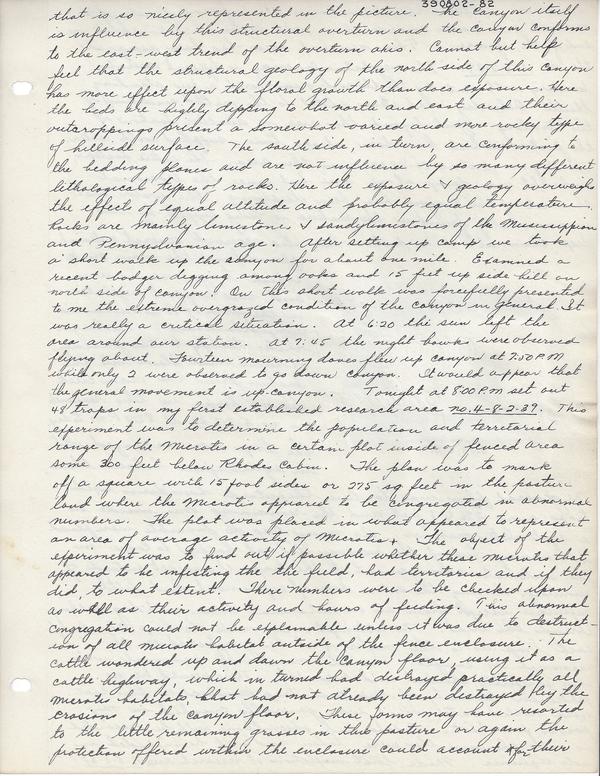 390802-82
that is so nicely represented in the picture. The canyon itself
is influence by this structural overturn and the canyon conforms
to the east-west trend of the overturn axis. Cannot but help
feel that the structural geology of the north side of this canyon
has more effect upon the floral growth than does exposure. Here
the beds are highly dipping to the north and east and their
outcroppings present a somewhat varied and more rocky type
of hillside surface. The south side, in turn, are conforming to
the bedding planes and are not influence by so many different
lithological types of rocks. Here the exposure & geology overweighs
the effect of equal altitude and probably equal temperature.
Rocks are mainly limestone & sandy limestones of the Mississippian
and Pennsylvanian age. After setting up camp we took
a short walk up the canyon for about one mile. Examined a
recent badger digging among oaks and 15 feet up side hill on
north side of canyon. On this short walk was forcefully presented
to me the extreme overgrazed condition of the canyon in general. It
was really a critical situation. At 6:20 the sun left the
area around our station. At 7:45 the night hawks were observed
flying about. Fourteen mourning doves flew up canyon at 7:50 P.M
while only 2 were observed to go down canyon. It would appear that
the general movement is up-canyon. Tonight at 8:00 P.M set out
48 traps in my first established research area no. 4-8-2-39. This
experiment was to determine the population and territorial
range of the Microtis in a certain plot inside of fenced area
some 300 feet below Rhodes Cabin. The plan was to mark
off a square with 15 foot sides or 225 sq feet in the pasture
land where the Microtis appeared to be congregated in abnormal
numbers. The plot was placed in what appeared to represent
an area of average activity of Microtis. The object of the
experiment was to find out if possible whether these microtis that
appeared to be infesting the the field, had territories and if they
did, to what extent. There numbers were to be checked upon
as well as their activity and hours of feeding. This abnormal
congregation could not be explainable unless it was due to destruct-
ion of all microtis habitat outside of the fence enclosure. The
cattle wondered up and down the canyon floor, using it as a
cattle highway, which in turned had distroyed practically all
microtis habitats, that had not already been distroyed by the
erosions of the canyon floor. These forms may have resorted
to the little remaining grasses in this pasture or again the
protection offered within the enclosure could account for their